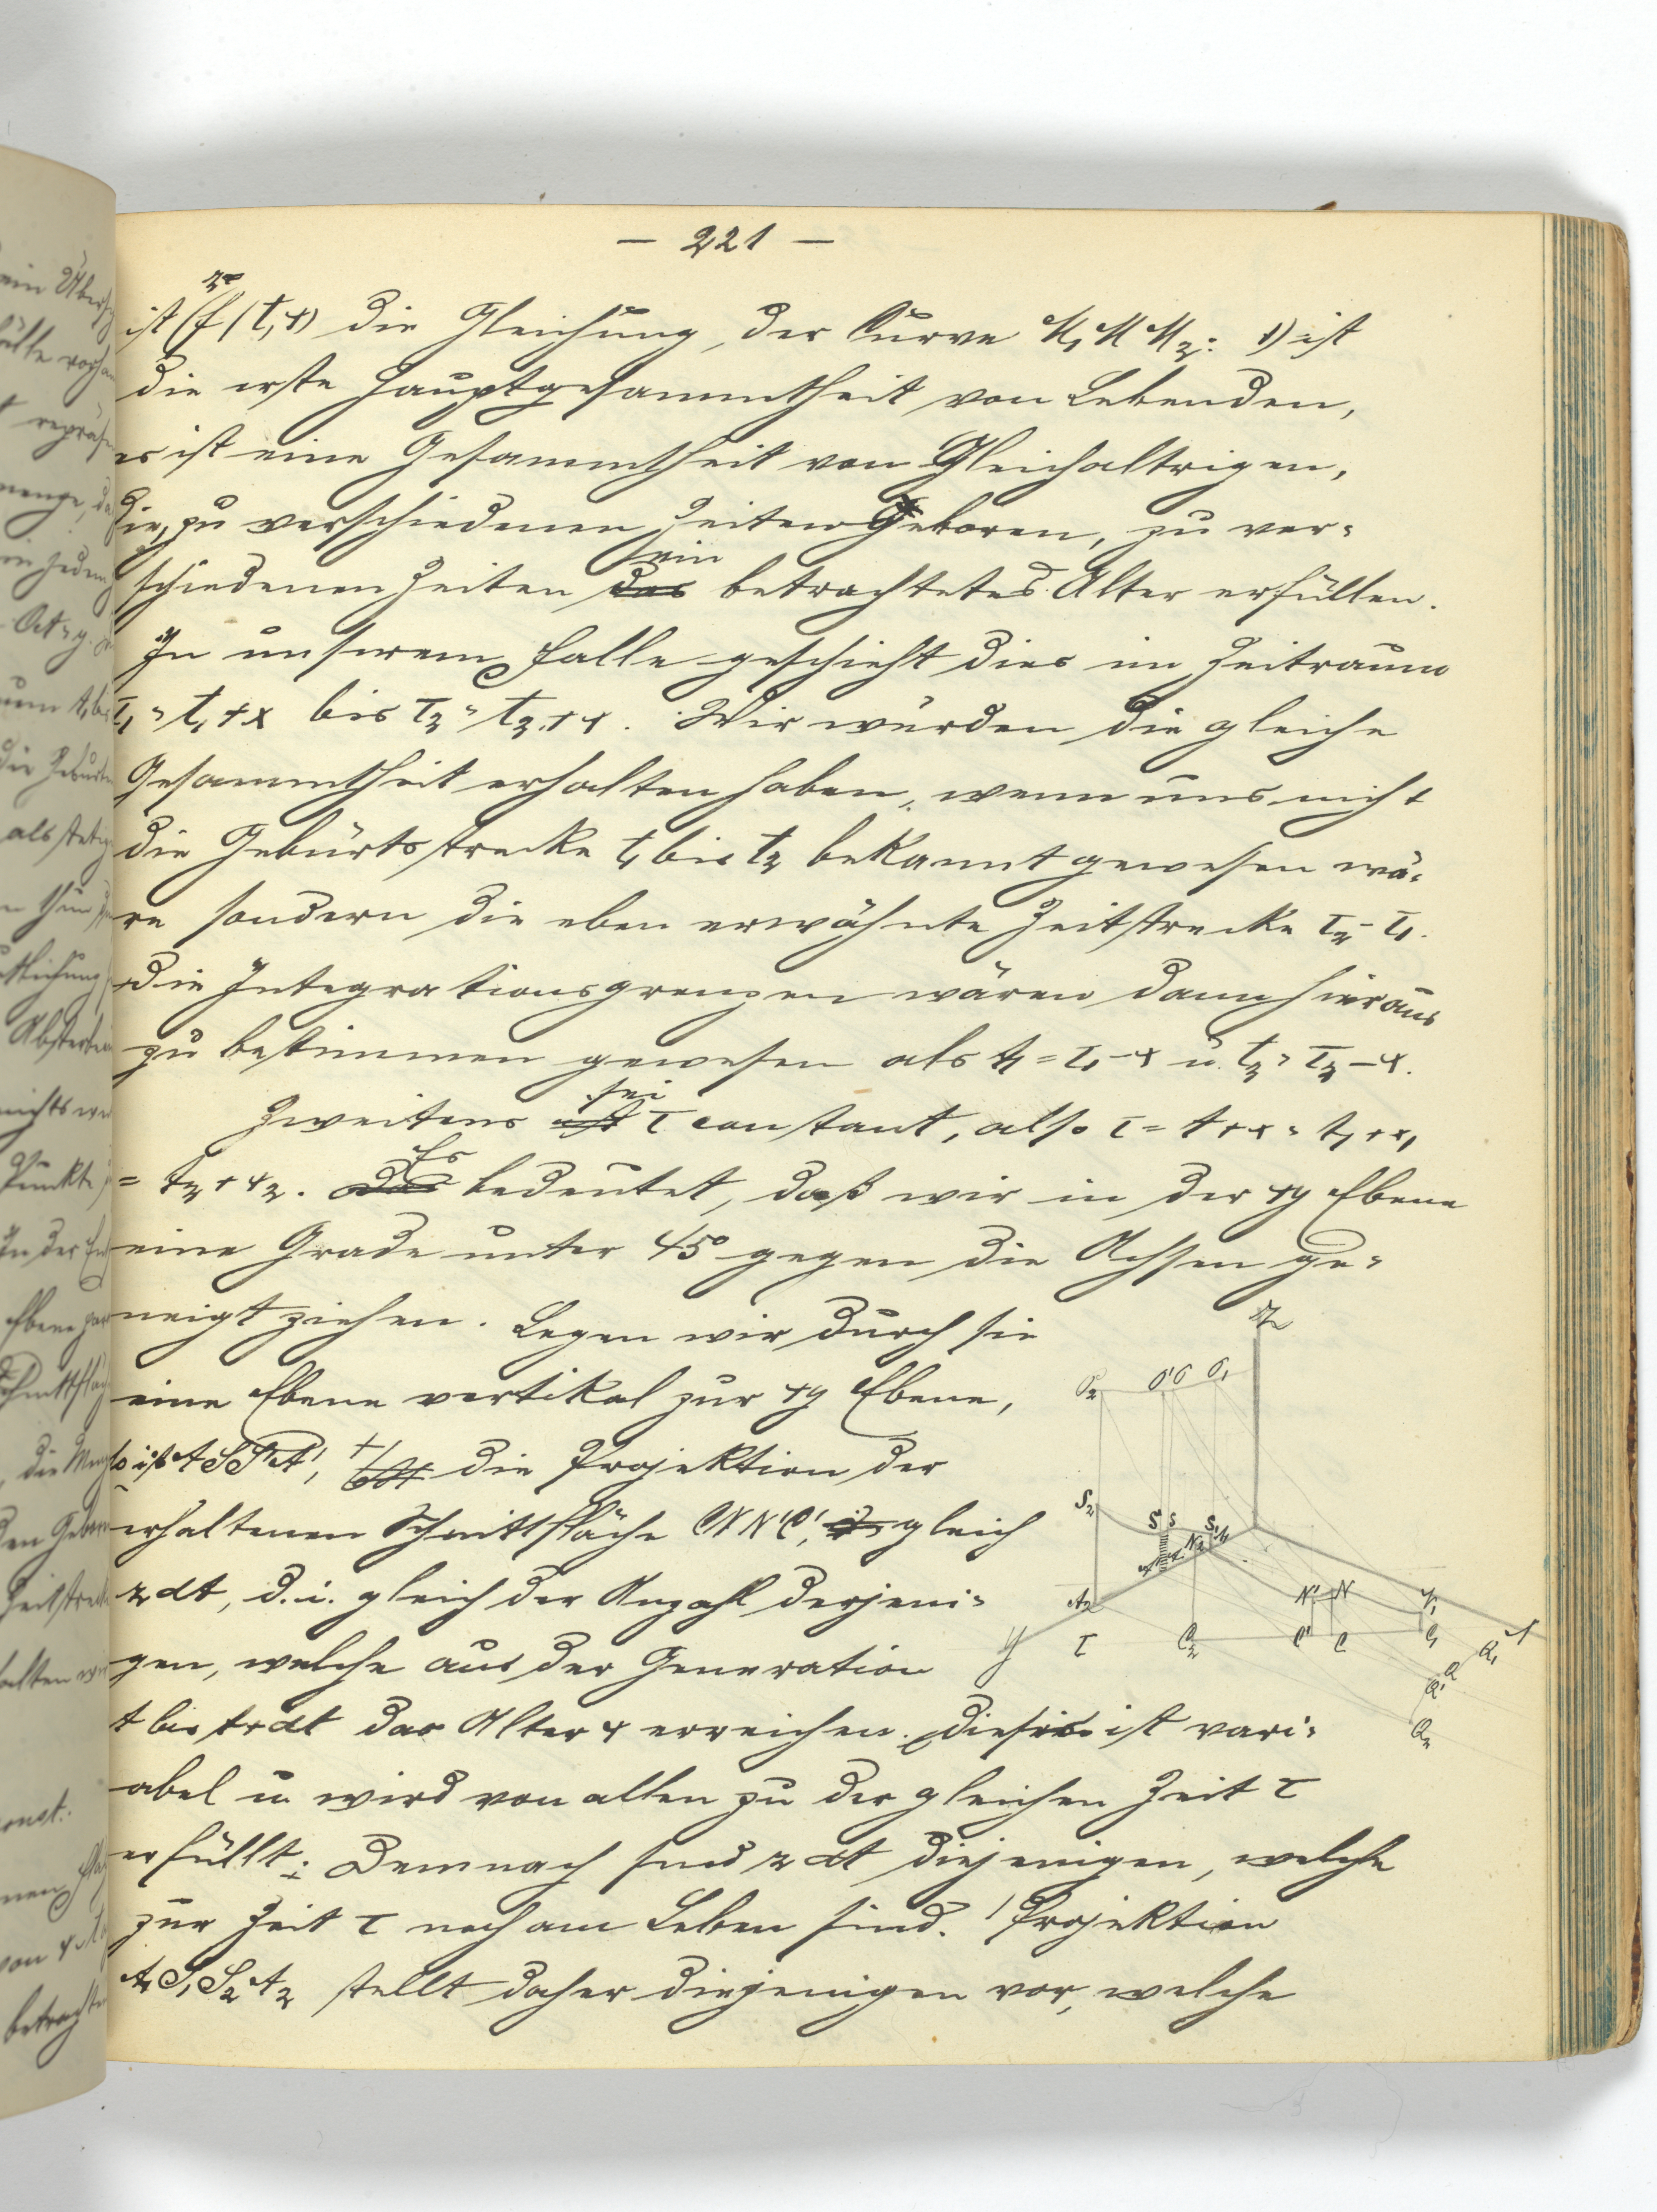 — 221 —
ist (z= f(t,x) die Gleichung, der Curve M₁MM₂: 1) ist
die erste Hauptgesammtheit von Lebenden,
es ist eine Gesammtheit von Gleichaltrigen,
die, zu verschiedenen Zeiten Geboren, zu ver-
schiedenen Zeiten das ein betrachtetes Alter erfüllen.
In unserem Falle geschieht dies im Zeitraum
τ₁ = t₁+x bis τ₂ = t₂+x. Wir würden die gleiche
Gesammtheit erhalten haben, wenn uns nicht
die Geburtsstrecke t₁ bis t₂ bekannt gewesen wä-
re sondern die eben erwähnte Zeitstrecke τ₂-τ₁.
Die Integrationsgrenzen wären dann hieraus
zu bestimmen gewesen als t₁ = τ₁-x u. t₂ = τ₂-x.
Zweitens ist sei τ constant, also τ = t+x = t₁+x₁
= t₂+x₂. Das Es bedeutet, daß wir in der xy Ebene
eine Grade unter 45° gegen die Achsen ge-
neigt ziehen. Legen wir durch sie
eine Ebene vertikal zur xy Ebene,
so ist ASS'A', die Projektion der
erhaltenen Schnittfläche CNN'C', gleich
z dt, d.i. gleich der Anzahl derjeni-
gen, welche aus der Generation
t bis t+dt das Alter x erreichen. Dieses ist vari-
abel u. wird von allen zu der gleichen Zeit τ
erfüllt: Demnach sind z dt diejenigen, welche
zur Zeit τ noch am Leben sind. Projektion
A₁S₁S₂A₂ stellt daher diejenigen vor, welche
Z
O₂ O' O O₁
S₂ S' S S₁
N₂ N' N N₁
A₂
y τ C₂ C' C C₁ X
Q₁
Q
Q'
Q₂